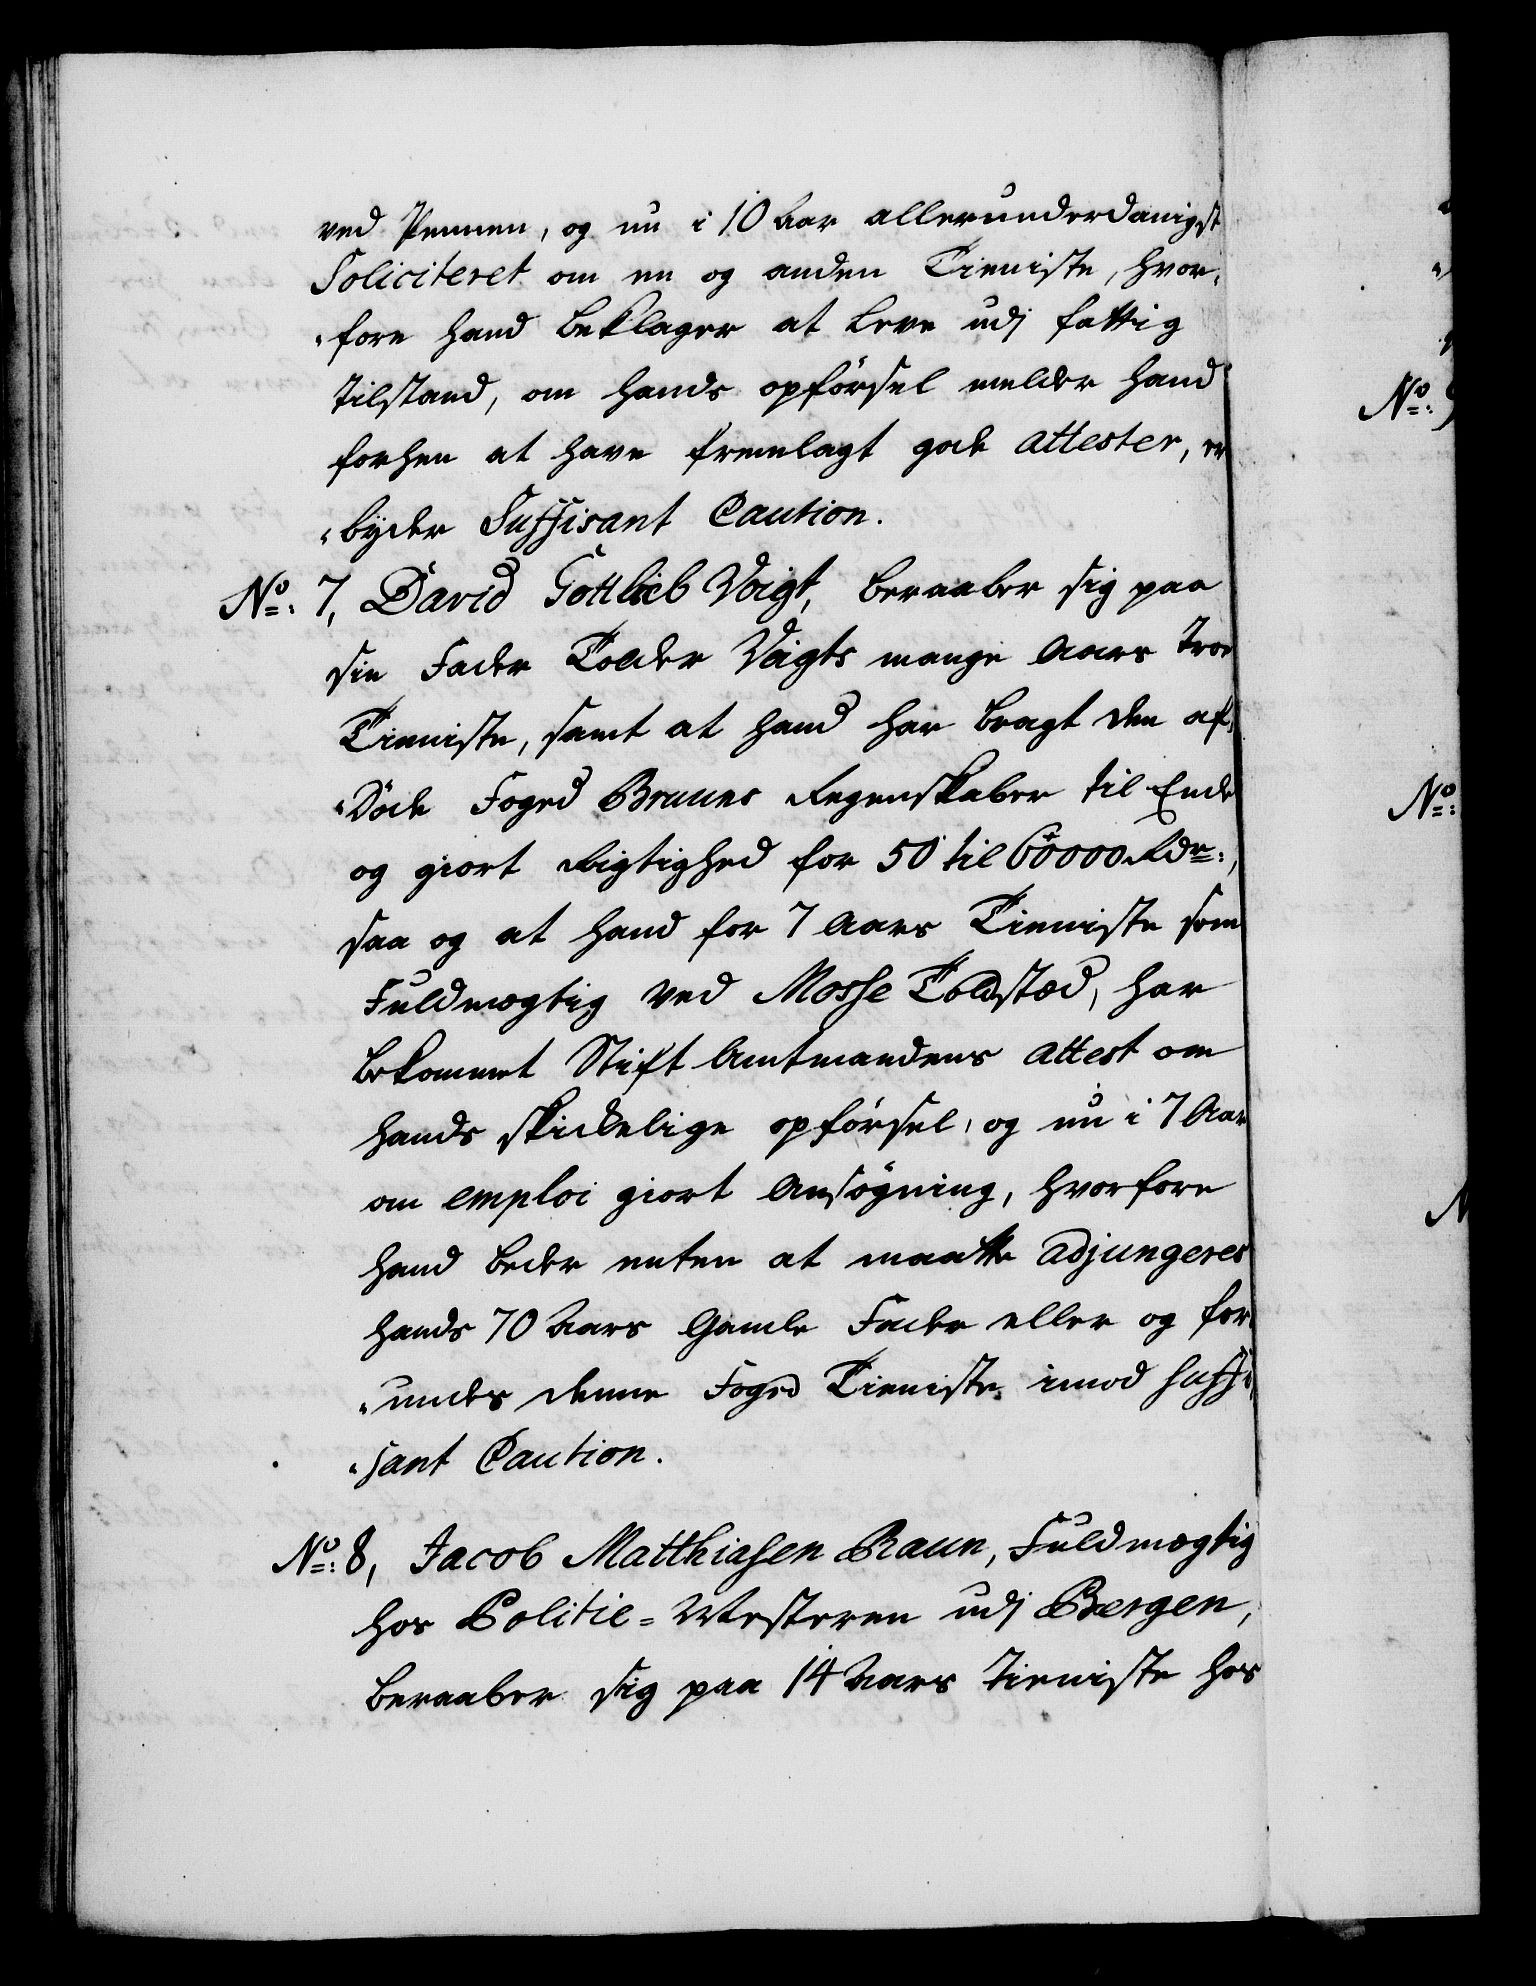 ved Pennen, og nu i 10 Aar allerunderdanigst
Soliciteret om en og anden Tieniste, hvor,
„fore hand beklager at leve udj fattig
tilstand, om hands opförsel melder hand
forhen at have fremlagt gode attester, er
„byder Suffisant Caution.
No: 7, David Gottlieb Voigt, beraaber sig paa
sin Fader Tolder Voigts mange Aars Troe
Tieniste, samt at hand har bragt den af,
„Döde Foged Bruuns Regenskaber til Ende
og giort Rigtighed for 50 til 60000 Rdr:,
saa og at hand for 7 Aars Tieniste som
Fuldmægtig ved Mosse Toldstæd, har
bekommet Stift Amtmandens attest om
hands skickelige opförsel, og nu i 7 Aar
om emploi giort Ansögning, hvorfore
hand beder enten at maatte adjungeres
hands 70 Aars Gamle Fader eller og for,
„undes denne Foged Tieniste imod Suffi,
„sant Caution.
No: 8, Jacob Matthiasen Raun, Fuldmægtig
hos Politie-Mesteren udj Bergen,
beraaber sig paa 14 Aars Tieniste hos
No: 9
No:
N